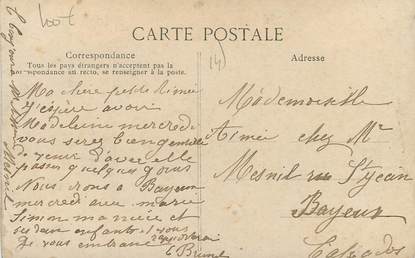 CARTE POSTALE
Correspondance
Tous les pays étrangers n'acceptent pas la
correspondance au recto, se renseigner à la poste.
Adresse
Ma chère petite Aimée
J'espère avoir
Madeleine mercredi
vous serez bien gentille
de venir d'avec elle
passer quelques jours
Nous irons a Bayeux
mercredi avec marie
Simon ma nièce et
enfants
Je vous embrasse
E Brunel
Mademoiselle
Aimée chez Mr
Mesnil rue St Jean
Bayeux
Calvados